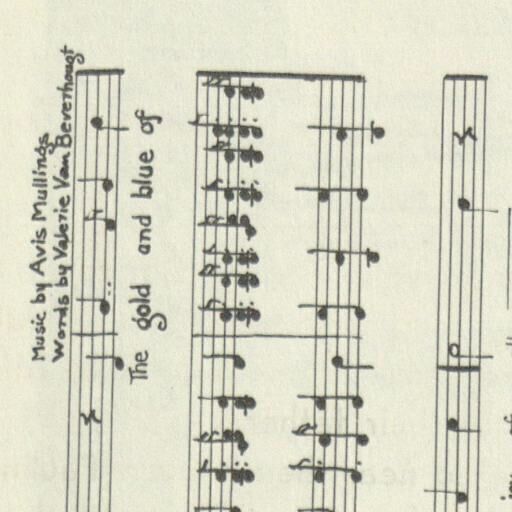 Music by Avis Mullings
Words by Valerie Van Beverhougt
The gold and blue of